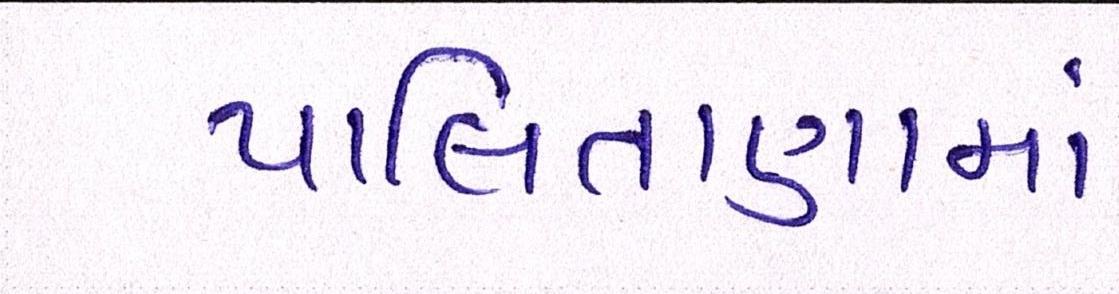 પાલિતાણામાં